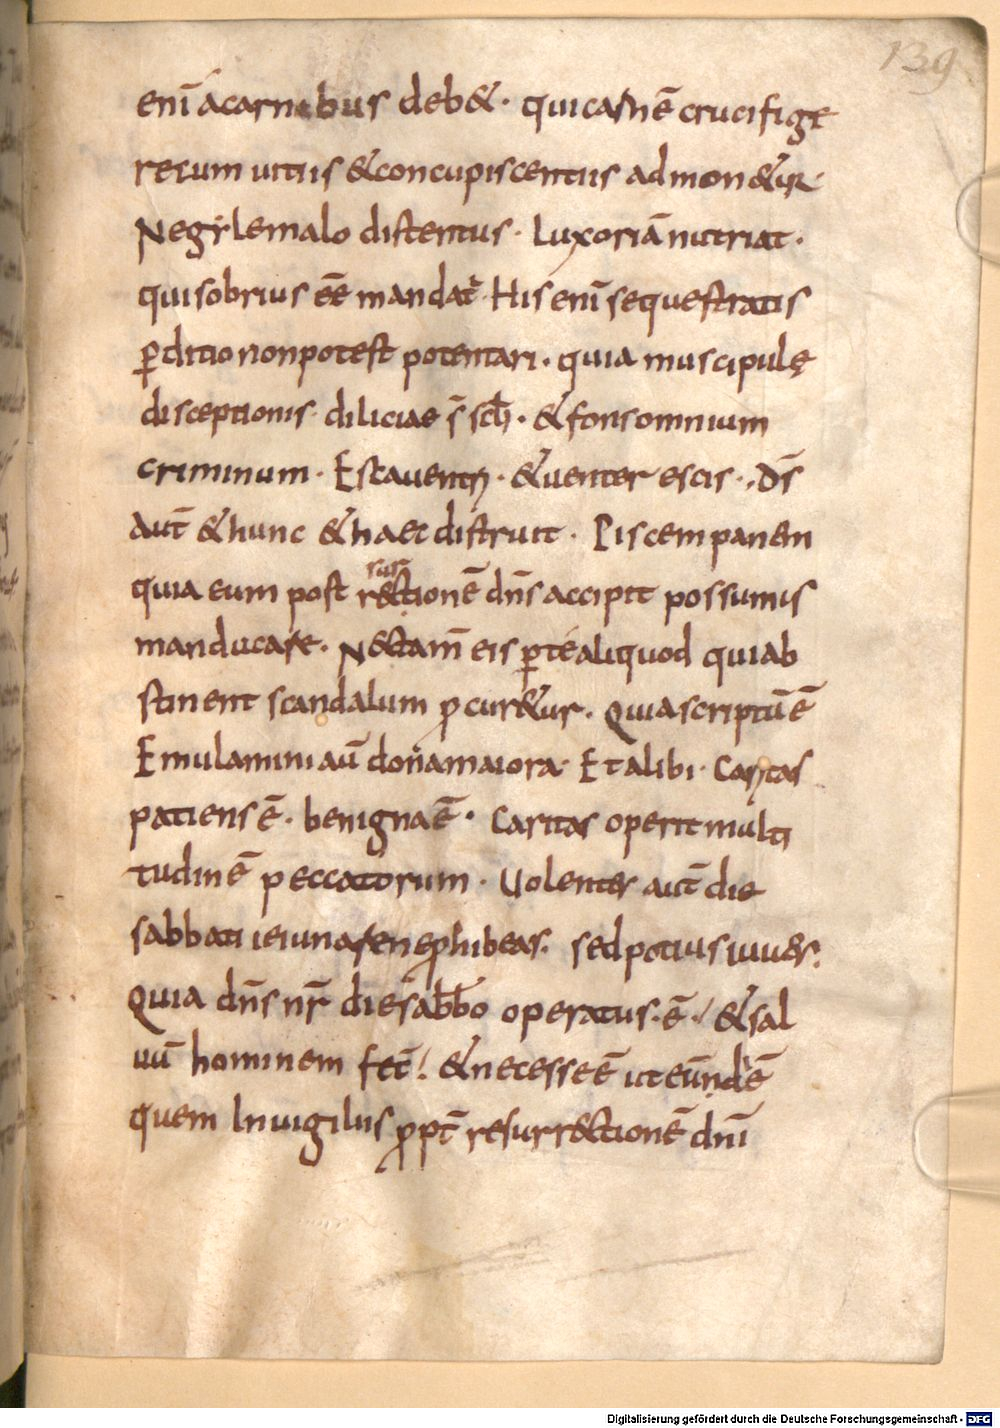 139
enī acarnibus deb&. qui carnē crucifige
recum uitiis &concupiscentiis admon&ur.
Negulemalo distentus. luxoriā nutriat.
quisobrius eē mandat̄. His enī sequestratis
ꝑditio nonpotest potentari. quia muscipulę
disceptionis diliciae s̄ sc̄b. & fons omnium
criminum. Esca uentri. & uenter escis. Dī
Aut̄ & hunc & haec distruit. Piscem panem
quia eum post resurr&ctionē dn̄s accipit possumus
manducare. N&tam̄ eis ꝑ te aliquod qui ab
stinent scandalum ꝓcur&ur. Quia scriptū ē
Emulamini aū dona maiora. Et alibi. Caritas
patiens ē. benigna ē. Caritas operit multi
tudinē peccatorum. Uolenter aut̄ die
sabbati ieiunare ne ꝓhibeas. sed potius iuues.
Quia dn̄s nr̄ die sabbo operatus. ē. & sal
uū hominem fec̄. & necesse ē ut eūndē
quem Inuigiliis ꝓpt̄ resurr&ctionē dn̄i
Digitalisierung gefördert durch die Deutsche Forschungsgemeinschaft - DFG